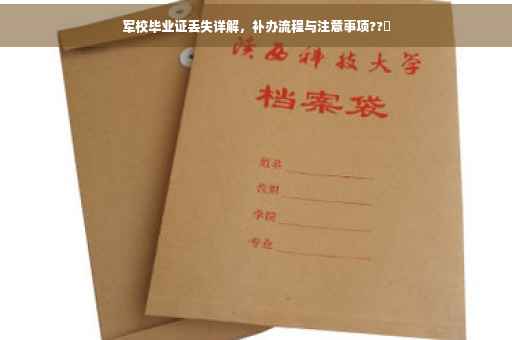 军校毕业证丢失详解，补办流程与注意事项??
陕西科技大学
档案袋
姓名
学院
专业